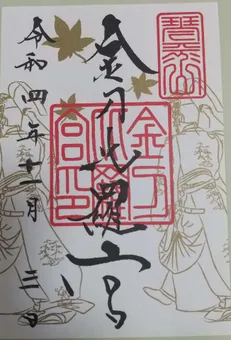 金刀比羅宮
令和四年十一月三日
金刀
比羅
宮印